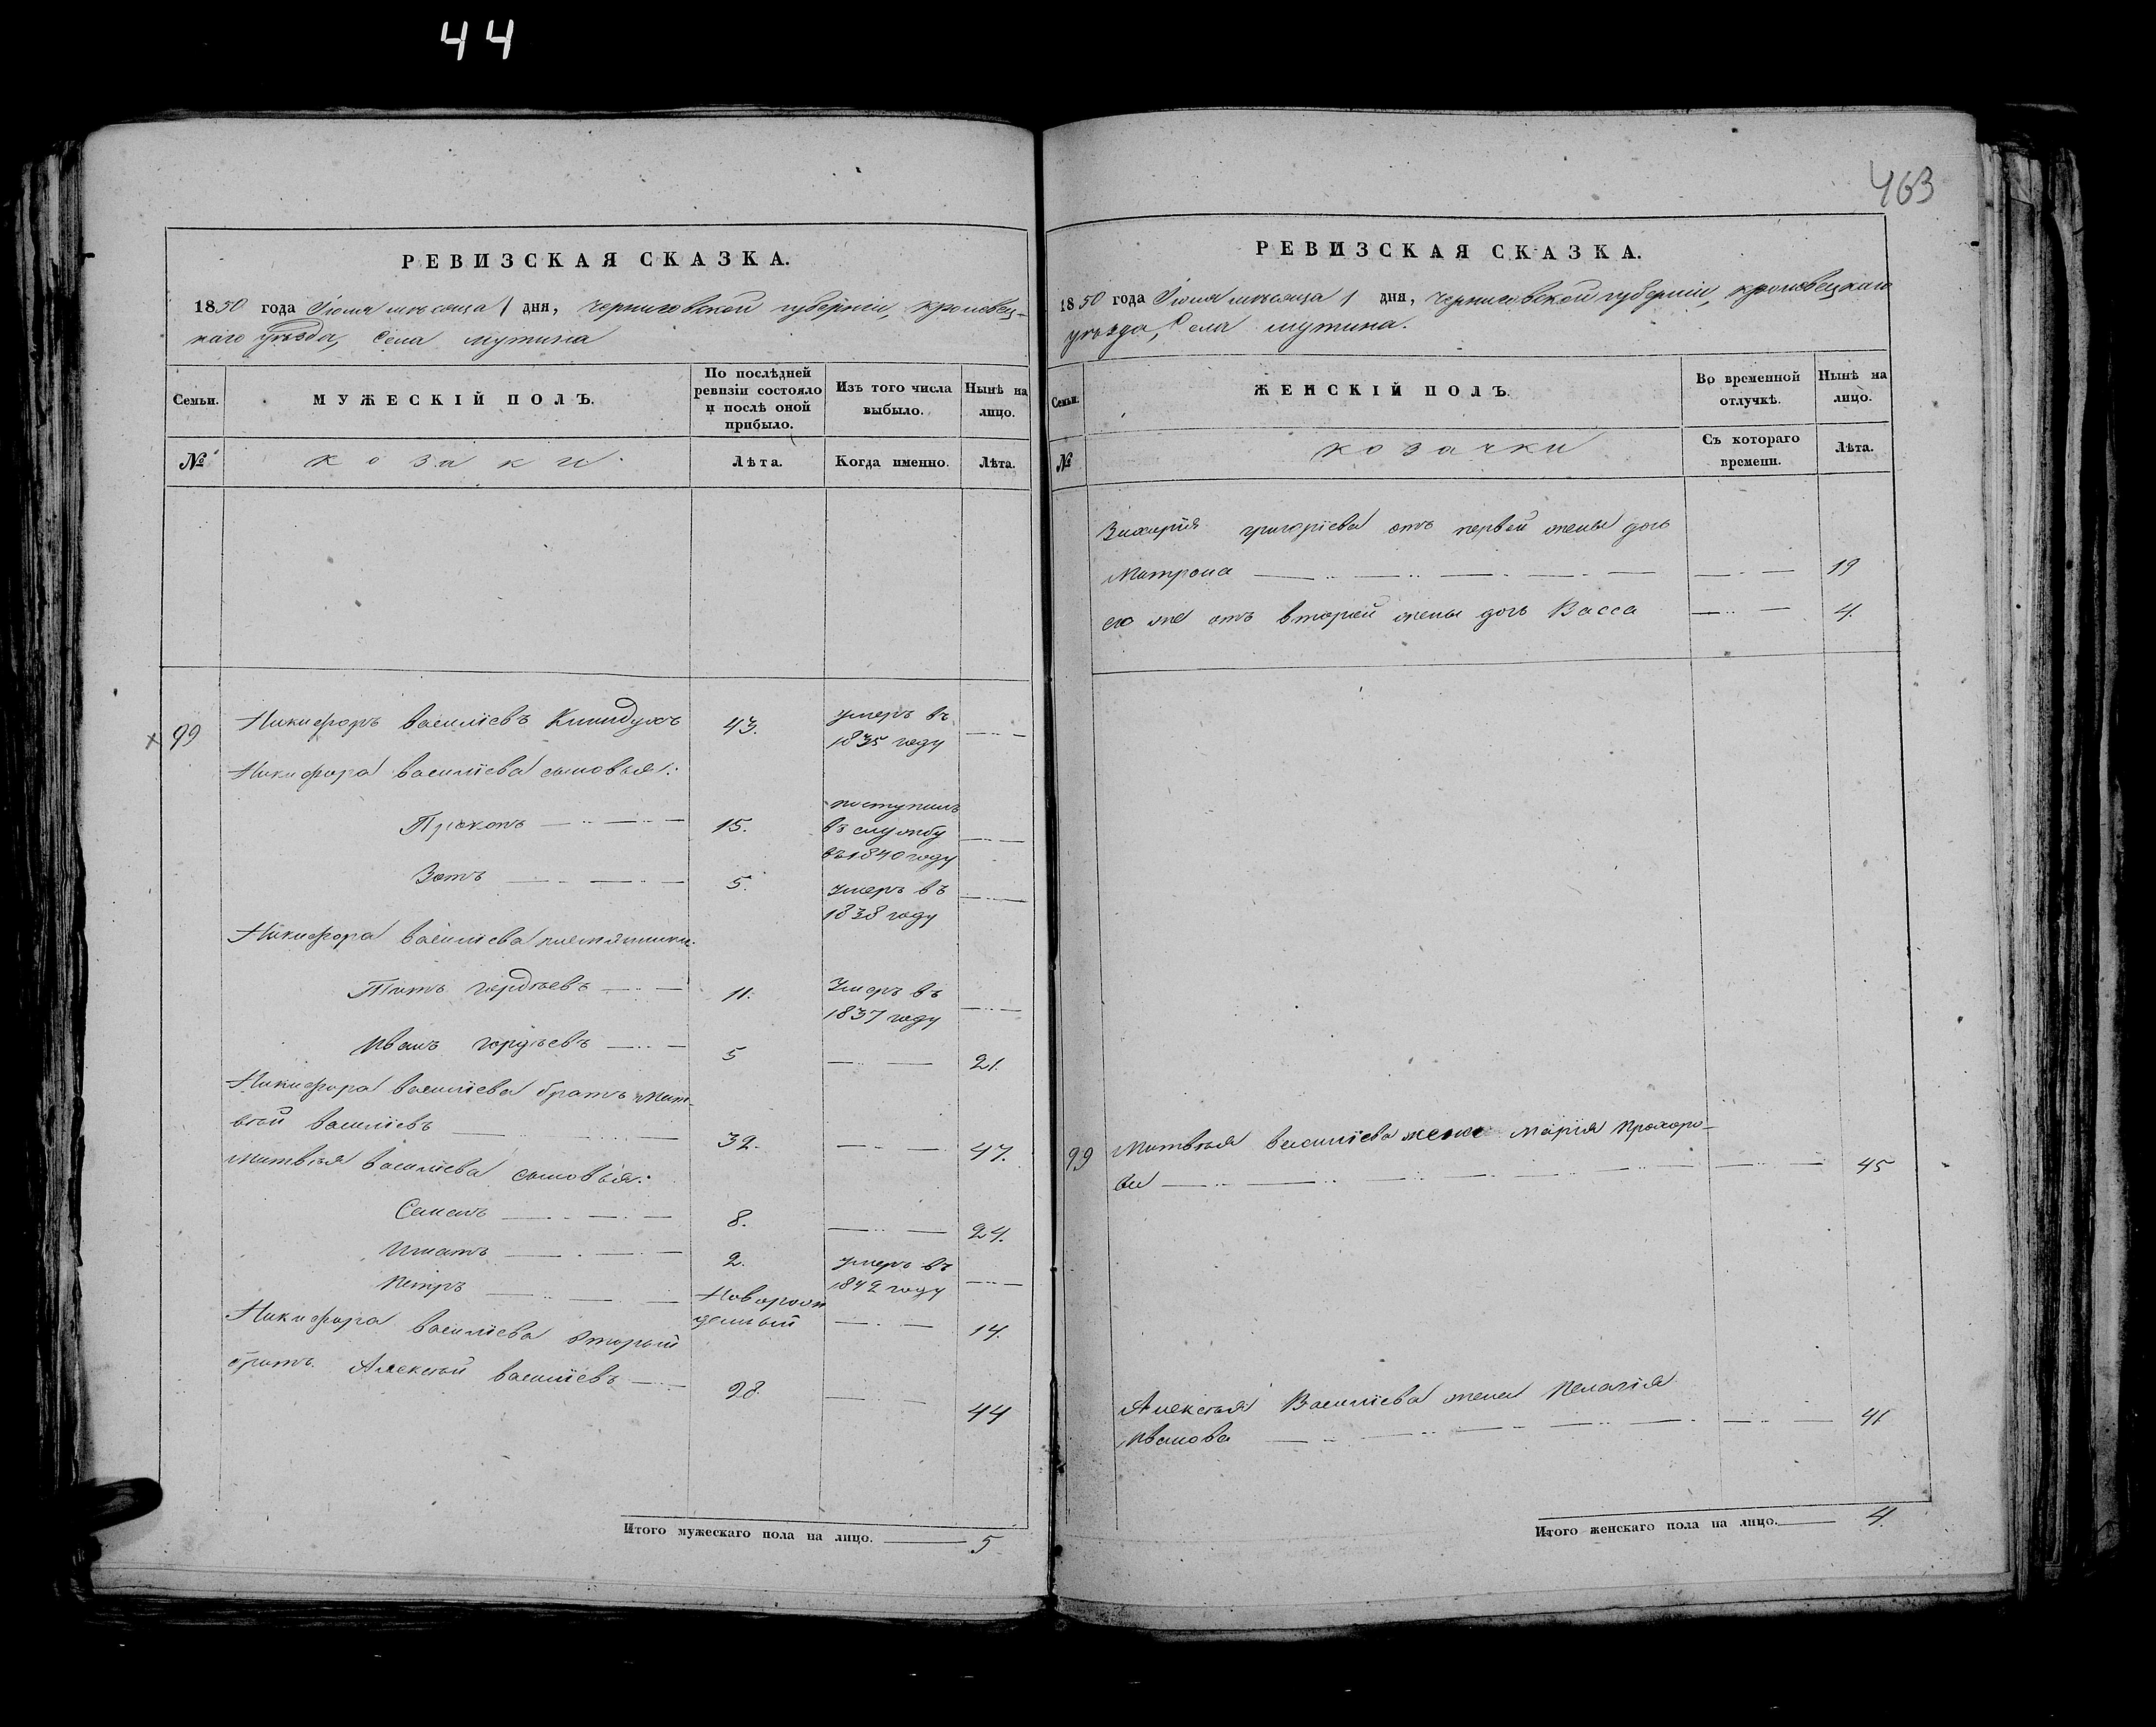 44
463
РЕВИЗСКАЯ СКАЗКА.
1850 года Июля мѣсяца 1 дня, Черниговской губерніи, Кролевец-
каго уѣзда, Села Мутина
Семьи.
МУЖЕСКІЙ ПОЛЪ.
По послѣдней ревизіи состояло и послѣ оной прибыло.
Изъ того числа выбыло.
Нынѣ на лицо.
№
козаки
Лѣта.
Когда именно.
Лѣта.
99 Никифоръ Васильевъ 43. умеръ въ
1835 году
Никифора Васильева сыновья:
Прокопъ 15. поступилъ
въ службу
въ 1840 году
Зотъ 5. умеръ въ
1838 году
Никифора Васильева племянники
Титъ Гордѣевъ 11. Умеръ въ
1837 году
Иванъ Гордѣевъ 5 21.
Никифора Васильева братъ Мат-
вѣй Васильевъ 32. 47.
Матвѣя Васильева сыновья:
Семенъ 8. 24.
Игнатъ 2. умеръ въ
1842 году
Петръ Новорож
денный 14.
Никифора Васильева вторый
братъ Алексѣй Васильевъ 28. 44
Итого мужескаго пола на лицо. 5
РЕВИЗСКАЯ СКАЗКА.
1850 года Июля мѣсяца 1 дня, Черниговской губерніи, Кролевецкаго
уѣзда, Села Мутина.
Семьи.
ЖЕНСКІЙ ПОЛЪ.
Во временной отлучкѣ.
Нынѣ на лицо.
№
козачки
Съ котораго времени.
Лѣта.
Захарія Григорьева отъ первой жены дочь
Матрона 19
его же отъ второй жены дочь Васса 4.
99 Матвѣя Васильева жена Марія Прохоро-
ва 45
Алексѣя Васильева жена Пелагія
Иванова 41
Итого женскаго пола на лицо. 4.